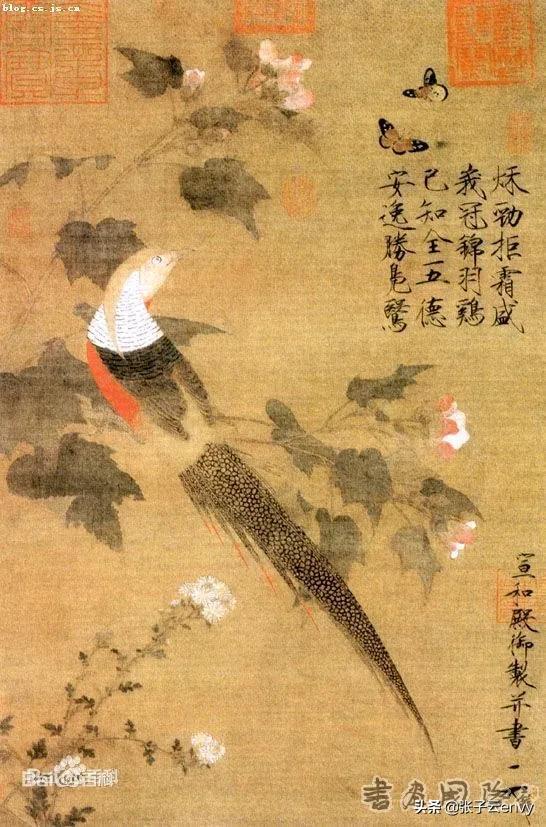 blog.cs.js.cn
秋勁拒霜盛
峩冠錦羽鷄
已知全五德
安逸勝鳧鷖
宣和殿御製并書
Bai百科
头条 @张子云envy